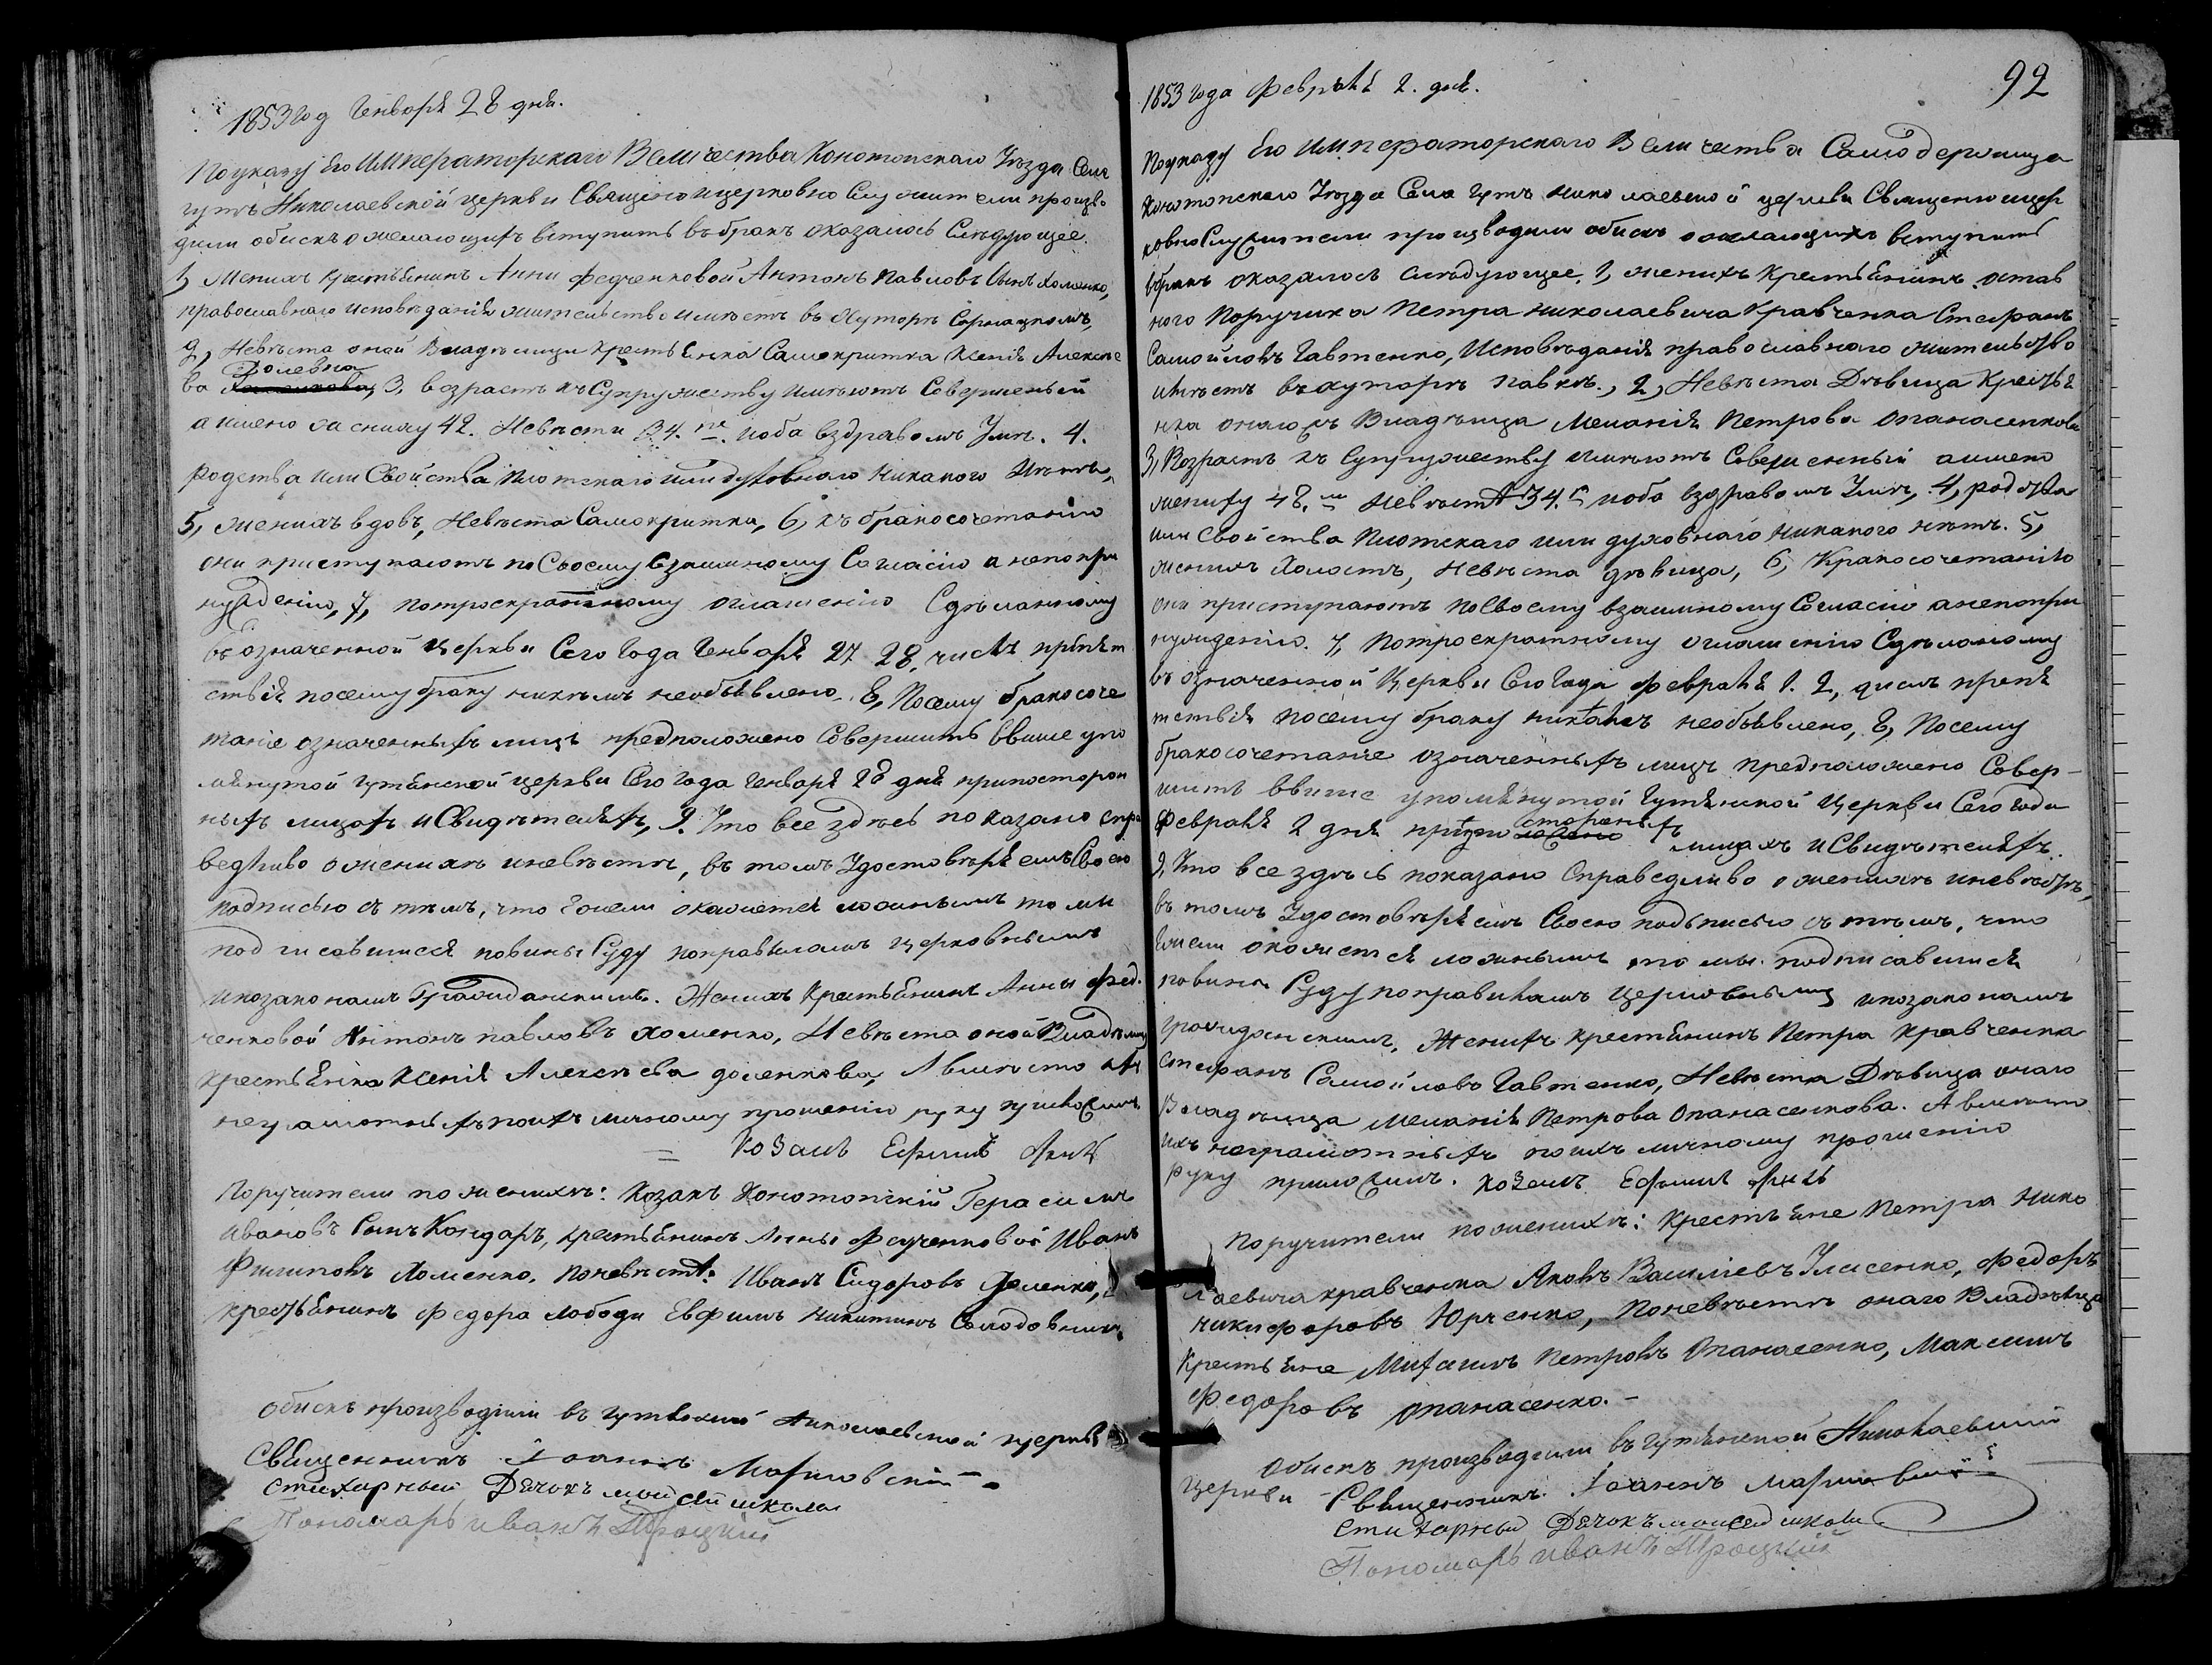 1853 год Генваря 28 дня.
По указу Его Императорскаго Величества Конотопскаго Уѣзда Села
Гутъ Николаевской церкви Священо и церковно Служители произво
дили обискъ о желающихъ вступить въ бракъ оказалось Слѣдующее.
1, Женихъ Крестьянинъ Анни Федченковой Антонъ Павловъ Сынъ Хоменко,
православнаго исповѣданія жительство имѣетъ въ Хуторѣ
2, Невѣста оной Владѣлици крестьянка Самокритка Ксенія Алексѣе
ва 3, возрастъ къ Супружеству имѣютъ Совершеный
а имено 42. Невѣсти 34. и оба въ здравомъ Умѣ. 4.
родства или Свойства плотскаго или духовнаго никакого Нѣтъ,
5, женихъ вдовъ, Невѣста Самокритка, 6, къ бракосочетанію
они приступаютъ по Своему взаимному Согласію а не по при
нужденію, 7, по троекратному оглашенію Сдѣланному
въ означенной церкви Сего Года Генваря 27 28, числъ препят
ствія посему браку никѣмъ необъявлено. 8, Посему бракосоче
таніе означенныхъ лицъ предположено Совершить ввише упо
мянутой Гутянской церкви Сего Года Генваря 28 дня при посторон
ныхъ лицахъ и Свидѣтеляхъ, 9. Что все здѣсь показано спра
ведливо о женихѣ и невѣстѣ, въ томъ Удостовѣряемъ Своею
подписью съ тѣмъ, что Ежели окажется ложнымъ то ми
подписавшиеся повины Суду по правиламъ церковнымъ
и по законамъ Гражданскимъ. Женихъ Крестьянинъ Анны Фед.
ченковой Антонъ павловъ хоменко, Невѣста оной Владѣлици
крестьянка Ксенія Алексѣева доленкова, А вмѣсто ихъ
неграмотныхъ по ихъ личному прошенію руку приложилъ
= Козакъ Ефимъ
Поручители по женихѣ: Козакъ Конотопскій Герасимъ
Ивановъ Сынъ Кондаръ, крестьянинъ Анны Федченковой Иванъ
Филиповъ Хоменко. По невѣстѣ: Иванъ Сидоровъ Доленко,
крестьянинъ Федора лободи Евфимъ Никитинъ Солодовникъ.
Обискъ производили въ Гутянской Николаевской церкви
Священникъ Іоаннъ
Стихарный Дячокъ моисей школа
Пономарь иванъ Троцкій
92
1853 года Февраля 2. дня.
По указу Его Императорскаго Величества Самодержица
Конотопскаго Уѣзда Села Гутъ николаевской церкви Священно и цер
ковно Служители производили обискъ о желающихъ вступить
вбракъ оказалось слѣдующее. 1, женихъ Крестьянинъ отстав
ного Поручика Петра николаевича Кравченка Стефанъ
Самойловъ Гавтенко, Исповѣданія православнаго жительство
имѣетъ въ хуторѣ, 2, Невѣста Дѣвица Крестья
нка онаго жъ Владѣлца Меланія Петрова Опанасенкова
3, Возрастъ къ Супружеству имѣютъ Совершенный а имено
жениху 48. Невѣстѣ 34. и оба въ здравомъ Умѣ, 4, родства
или Свойства Плотскаго или духовнаго никакого нѣтъ. 5,
женихъ Холостъ, невѣста дѣвица, 6, К бракосочетанію
они приступаютъ по Своему взаимному Согласію а не по при
нужденію. 7, По троекратному оглашенію Сдѣланому
въ означенной Церкви Сего Года Февраля 1. 2, числъ препя
тствія посему браку никѣмъ необъявлено, 8, Посему
бракосочетаніе означенныхъ лицъ предположено Совер-
шить ввише упомянутой Гутянской Церкви Сего Года
Февраля 2 дня при по сторонныхъ лицахъ и Свидѣтеляхъ.
9, Что все здѣсь показано Справедливо о женихѣ и невѣстѣ,
въ томъ Удостовѣряемъ Своею подписью съ тѣмъ, что
Ежели окажется ложнымъ то мы подписавшися
повины Суду по правиламъ Церковнымъ и по законамъ
гражданскимъ, Женихъ Крестьянинъ Петра Кравченка
Стефанъ Самойловъ Гавтенко, Невѣста Дѣвица онаго
Владѣлца Меланія Петрова Опанасенкова. А вмѣсто
ихъ неграмотныхъ по ихъ личному прошенію
Руку приложилъ. козакъ Ефимъ
Поручители по женихѣ: Крестьяне Петра Нико
лаевича кравченка Яковъ Василіевъ Федоръ
никифоровъ Юрченко, По невѣстѣ онаго Владѣлца
Крестьяне Михаилъ Петровъ Опанасенко, Максимъ
Федоровъ Опанасенко.-
Обискъ производили въ Гутянской Николаевской
Церкви Священникъ Іоаннъ
Стихарный Дячокъ моисей школа
Пономарь иванъ Троцкій